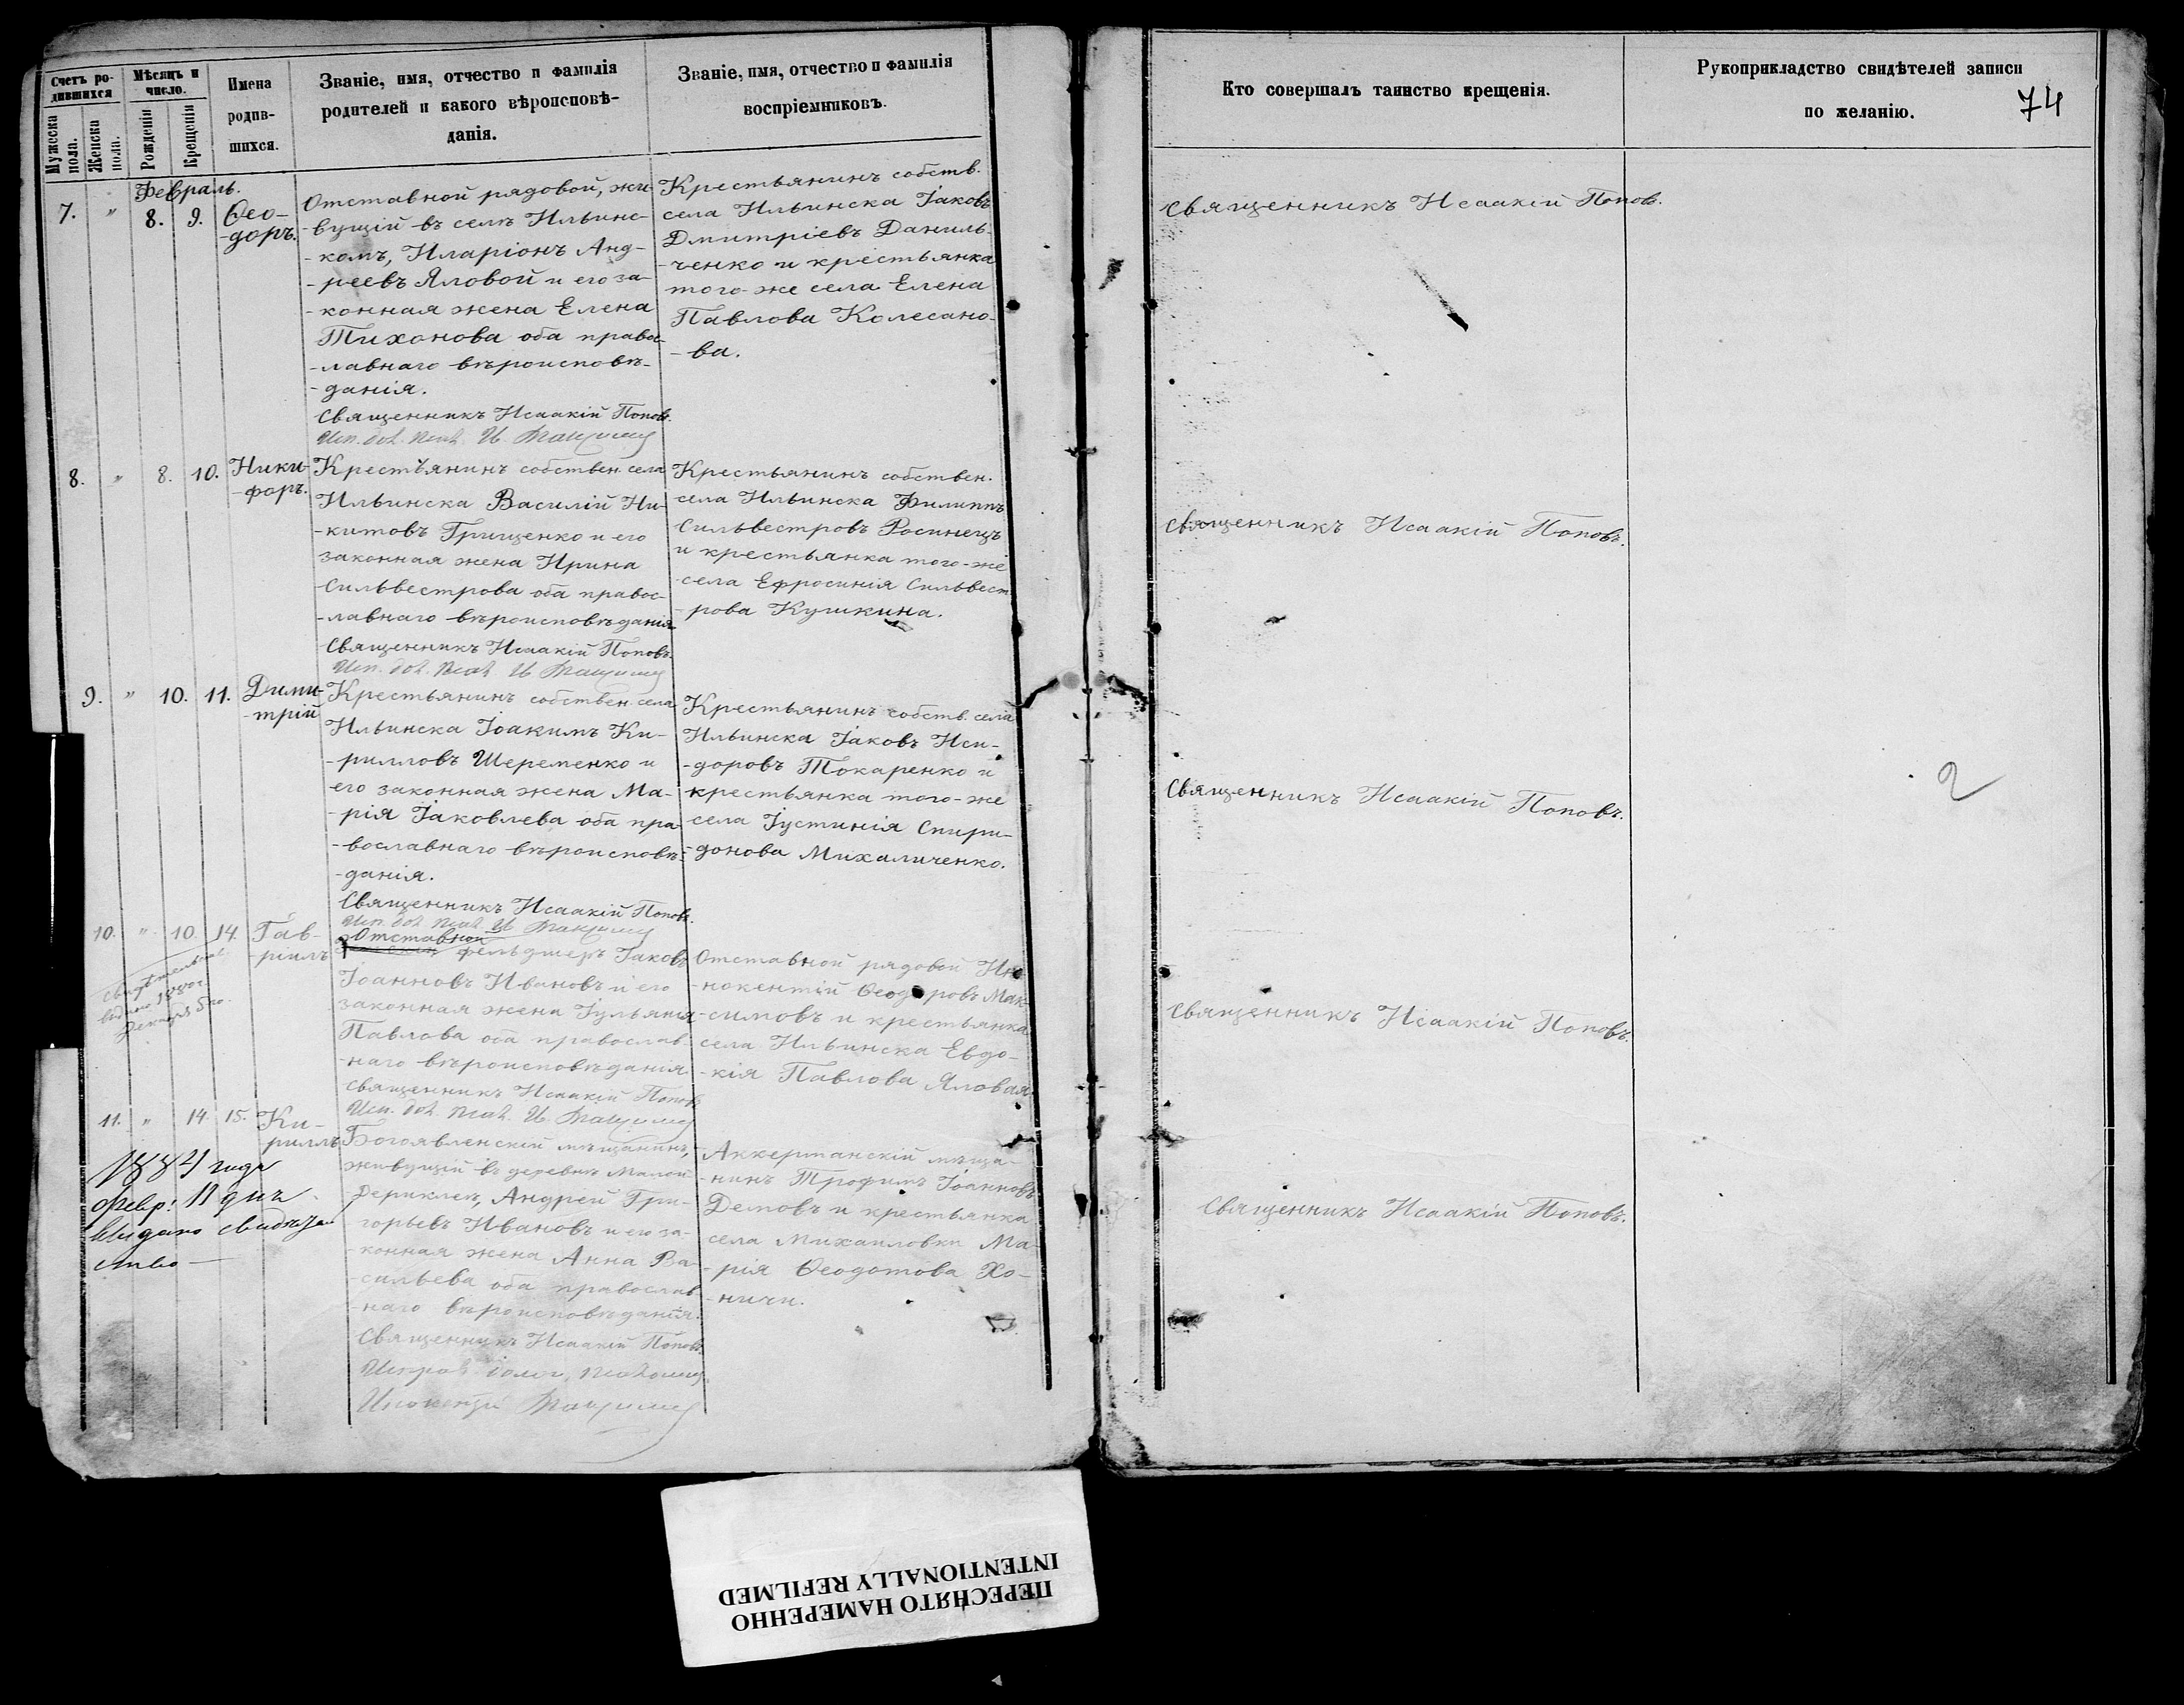 Счетъ ро-
дившихся
Мужеска пола.
Женска пола.
Мѣсяцъ и
число.
Рожденія
Крещенія
Имена
родив-
шихся.
Званіе, имя, отчество и фамилія
родителей и какого вѣроисповѣ-
данія.
Званіе, имя, отчество и фамилія
воспріемниковъ.
Кто совершалъ таинство крещенія.
Рукоприкладство свидѣтелей записи
по желанію.
74
Февраль.
7. " 8. 9. Ѳео-
-доръ.
Отставной рядовой, жи-
-вущій въ селѣ Ильинс-
-комъ, Иларіонъ Анд-
-реевъ Яловой и его за-
-конная жена Елена
Тихонова оба правос-
-лавнаго вѣроисповѣ-
-данія.
Священникъ Исаакій Поповъ.
Исп. дол. Псал. И.
Крестьянинъ собств.
села Ильинска Іаковъ
Дмитріевъ Даниль-
-ченко и крестьянка
того-же села Елена
Павлова Колесано-
-ва.
Священникъ Исаакій Поповъ.
8. " 8. 10. Ники-
-форъ.
Крестьянинъ собствен. села
Ильинска Василій Ни-
-китовъ Грищенко и его
законная жена Ирина
Сильвестрова оба правос-
-лавнаго вѣроисповѣданія
Священникъ Исаакій Поповъ.
Исп. дол. Псал. И.
Крестьянинъ собствен.
села Ильинска Филиппъ
Сильвестровъ Росинецъ
и крестьянка того-же
села Ефросинія Сильвест-
-рова Кушкина.
Священникъ Исаакій Поповъ.
9. " 10. 11. Дими-
-трій
Крестьянинъ собствен. села
Ильинска Іоакимъ Ки-
-рилловъ Шеременко и
его законная жена Ма-
-рія Іаковлева оба пра-
-вославнаго вѣроисповѣ-
-данія.
Священникъ Исаакій Поповъ.
Исп. дол. Псал. И.
Крестьянинъ собств. села
Ильинска Іаковъ Иси-
-доровъ Токаренко и
крестьянка того-же
села Іустинія Спири-
-донова Михаличенко.
Священникъ Исаакій Поповъ.
2
10. " 10. 14. Гав-
-ріилъ
Отставной
фельдшеръ Іаковъ
Іоанновъ Ивановъ и его
законная жена Іульянія
Павлова оба православ-
-наго вѣроисповѣданія
Священникъ Исаакій Поповъ
Исп. дол. Псал. И.
Отставной рядовой Ин-
-нокентій Ѳеодоровъ Мак-
-симовъ и крестьянка
села Ильинска Евдо-
-кія Павлова Яловая.
Священникъ Исаакій Поповъ.
11. " 14. 15. Ки-
-риллъ
1884 года
Февр: 11 дня
выдано свидѣтель
ство
Богоявленскій мѣщанинъ,
живущій въ деревнѣ Малой
Дериклеи, Андрей Гри-
-горьевъ Ивановъ и его за-
-конная жена Анна Ва-
-сильева оба православ-
-наго вѣроисповѣданія.
Священникъ Исаакій Поповъ.
Аккерманскій мѣща-
-нинъ Трофимъ Іоанновъ
Демовъ и крестьянка
села Михаиловки Ма-
-рія Ѳеодотова Хо-
-ничи.
Священникъ Исаакій Поповъ.
ПЕРЕСНЯТО НАМЕРЕННО
INTENTIONALLY REFILMED